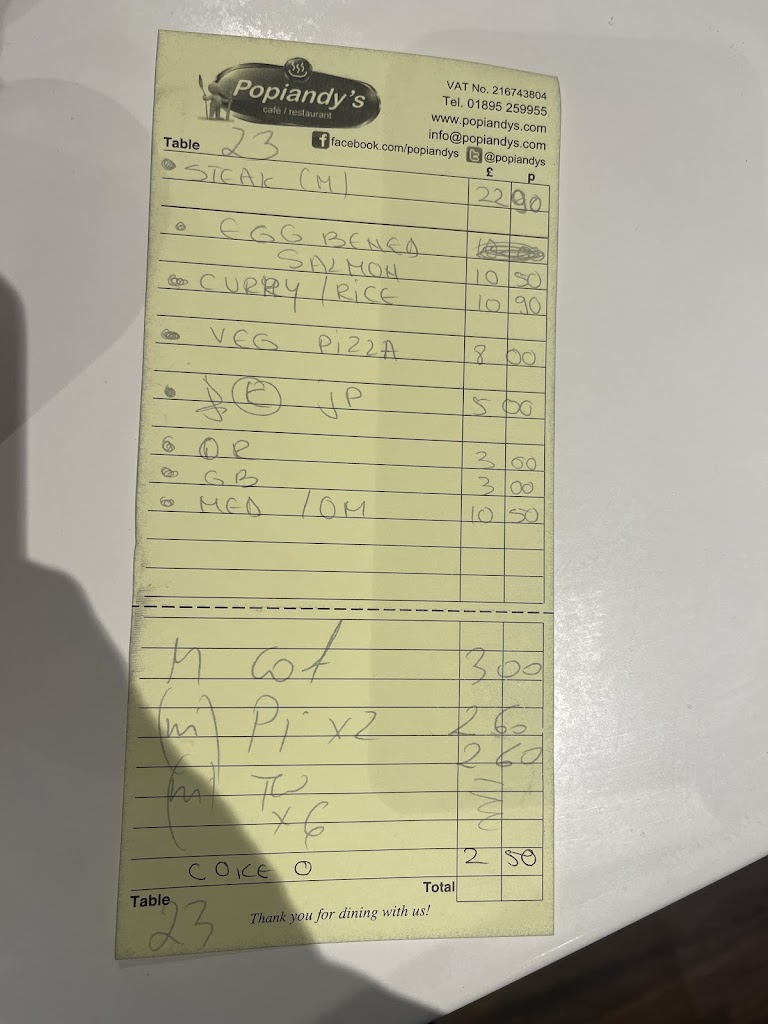 Popiandy's
café / restaurant
VAT No. 216743804
Tel. 01895 259955
www.popiandys.com
info@popiandys.com
facebook.com/popiandys @popiandys
Table 23
£ p
STEAK (M) 22 90
EGG BENED
SALMON 10 50
CURRY / RICE 10 90
VEG PIZZA 8 00
E JP 5 00
OR 3 00
GB 3 00
MED / OM 10 50
M 3 00
(m) Pi x2 2 60
2 60
(m) TW
x6
COKE O 2 50
Total
Table 23
Thank you for dining with us!